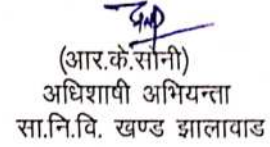 (आर.के.सोनी)
अधिशाषी अभियन्ता
सा.नि.वि. खण्ड झालावाड